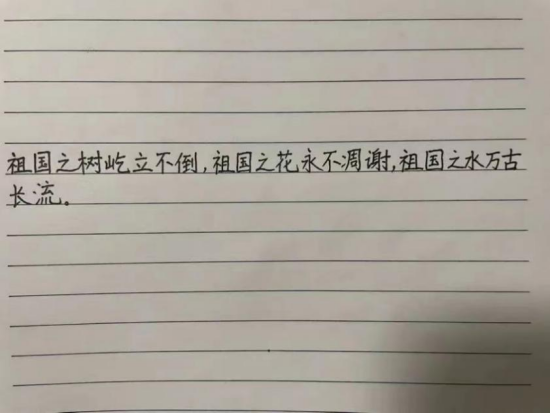 祖国之树屹立不倒,祖国之花永不凋谢,祖国之水万古
长流。